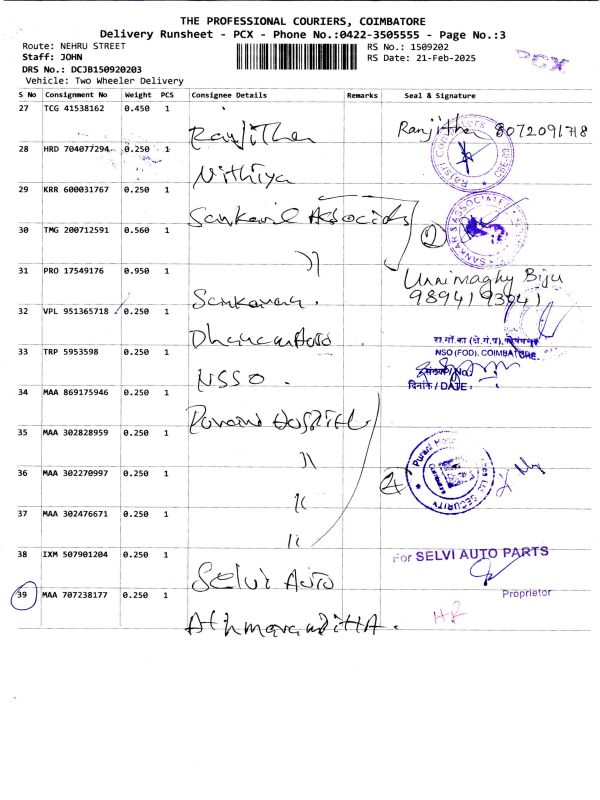 THE PROFESSIONAL COURIERS, COIMBATORE
Delivery Runsheet - PCX - Phone No.:0422-3505555 - Page No.:3
Route: NEHRU STREET
RS No.: 1509202
Staff: JOHN
RS Date: 21-Feb-2025
PCX
DRS No.: DCJB150920203
Vehicle: Two Wheeler Delivery
S No Consignment No Weight PCS Consignee Details Remarks Seal & Signature
27 TCG 41538162 0.450 1
Ranjitha 8072091718
28 HRD 704077294 0.250 1
Nithiya
29 KRR 600031767 0.250 1
Sankaril Associats
30 TMG 200712591 0.560 1
2
SANKAR & ASSOCIATES
31 PRO 17549176 0.950 1
Unnimaghy Biju
9894193041
32 VPL 951365718 0.250 1
33 TRP 5953598 0.250 1
NSO (FOD), COIMBATORE
NSSO
दिनांक / DATE
34 MAA 869175946 0.250 1
Hospital
35 MAA 302828959 0.250 1
36 MAA 302270997 0.250 1
4
SECURITY
37 MAA 302476671 0.250 1
38 IXM 507901204 0.250 1
Selvi Auto
For SELVI AUTO PARTS
Proprietor
39 MAA 707238177 0.250 1
HR